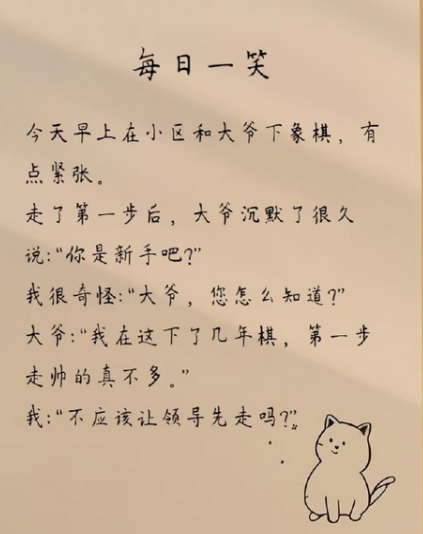 每日一笑
今天早上在小区和大爷下象棋，有
点紧张。
走了第一步后，大爷沉默了很久
说:“你是新手吧?”
我很奇怪:“大爷，您怎么知道?”
大爷:“我在这下了几年棋，第一步
走帅的真不多。”
我:“不应该让领导先走吗?”